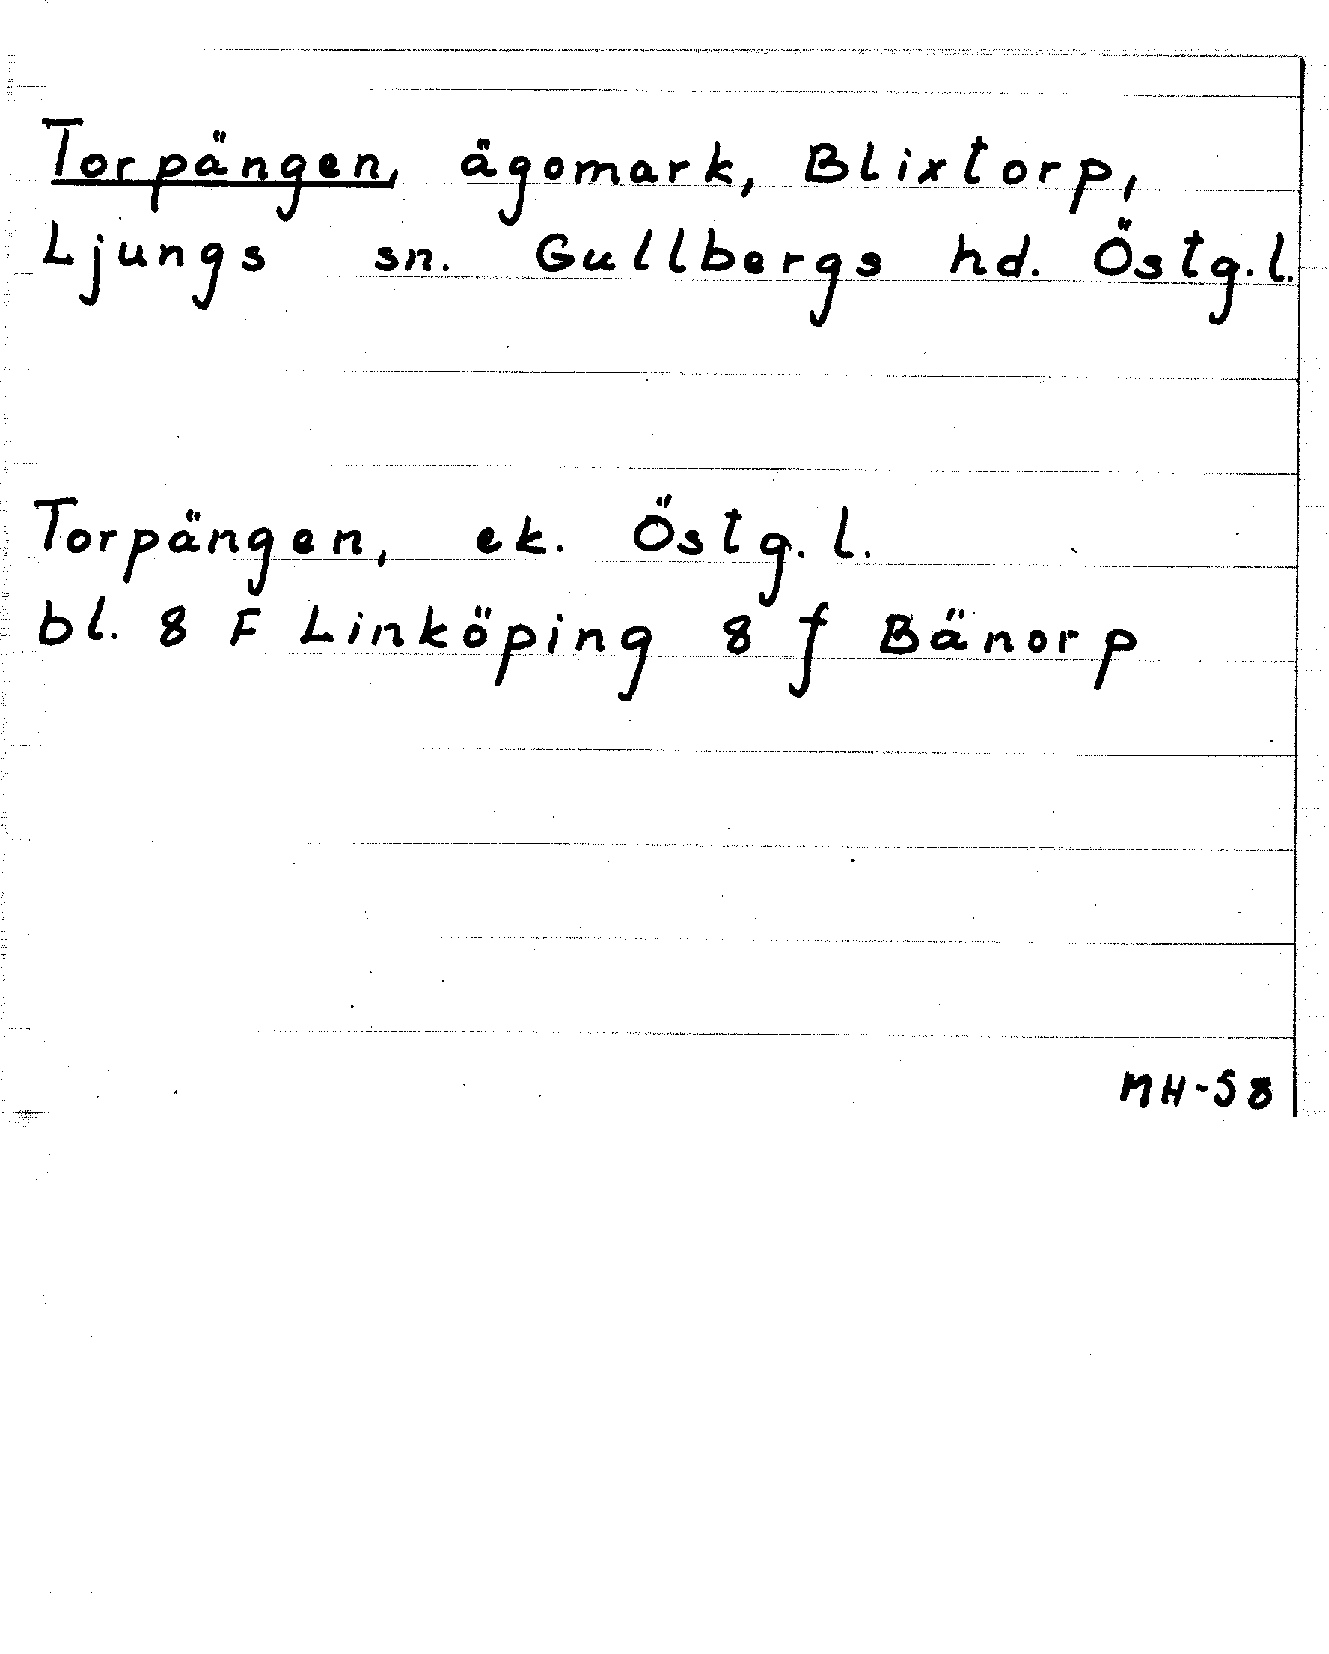 Torpängen, ägomark, Blixtorp,
Ljungs sn. Gullbergs hd. Östg.l.
Torpängen, ek. Östg.l.
bl. 8 F Linköping 8 f Bänorp
MH-58